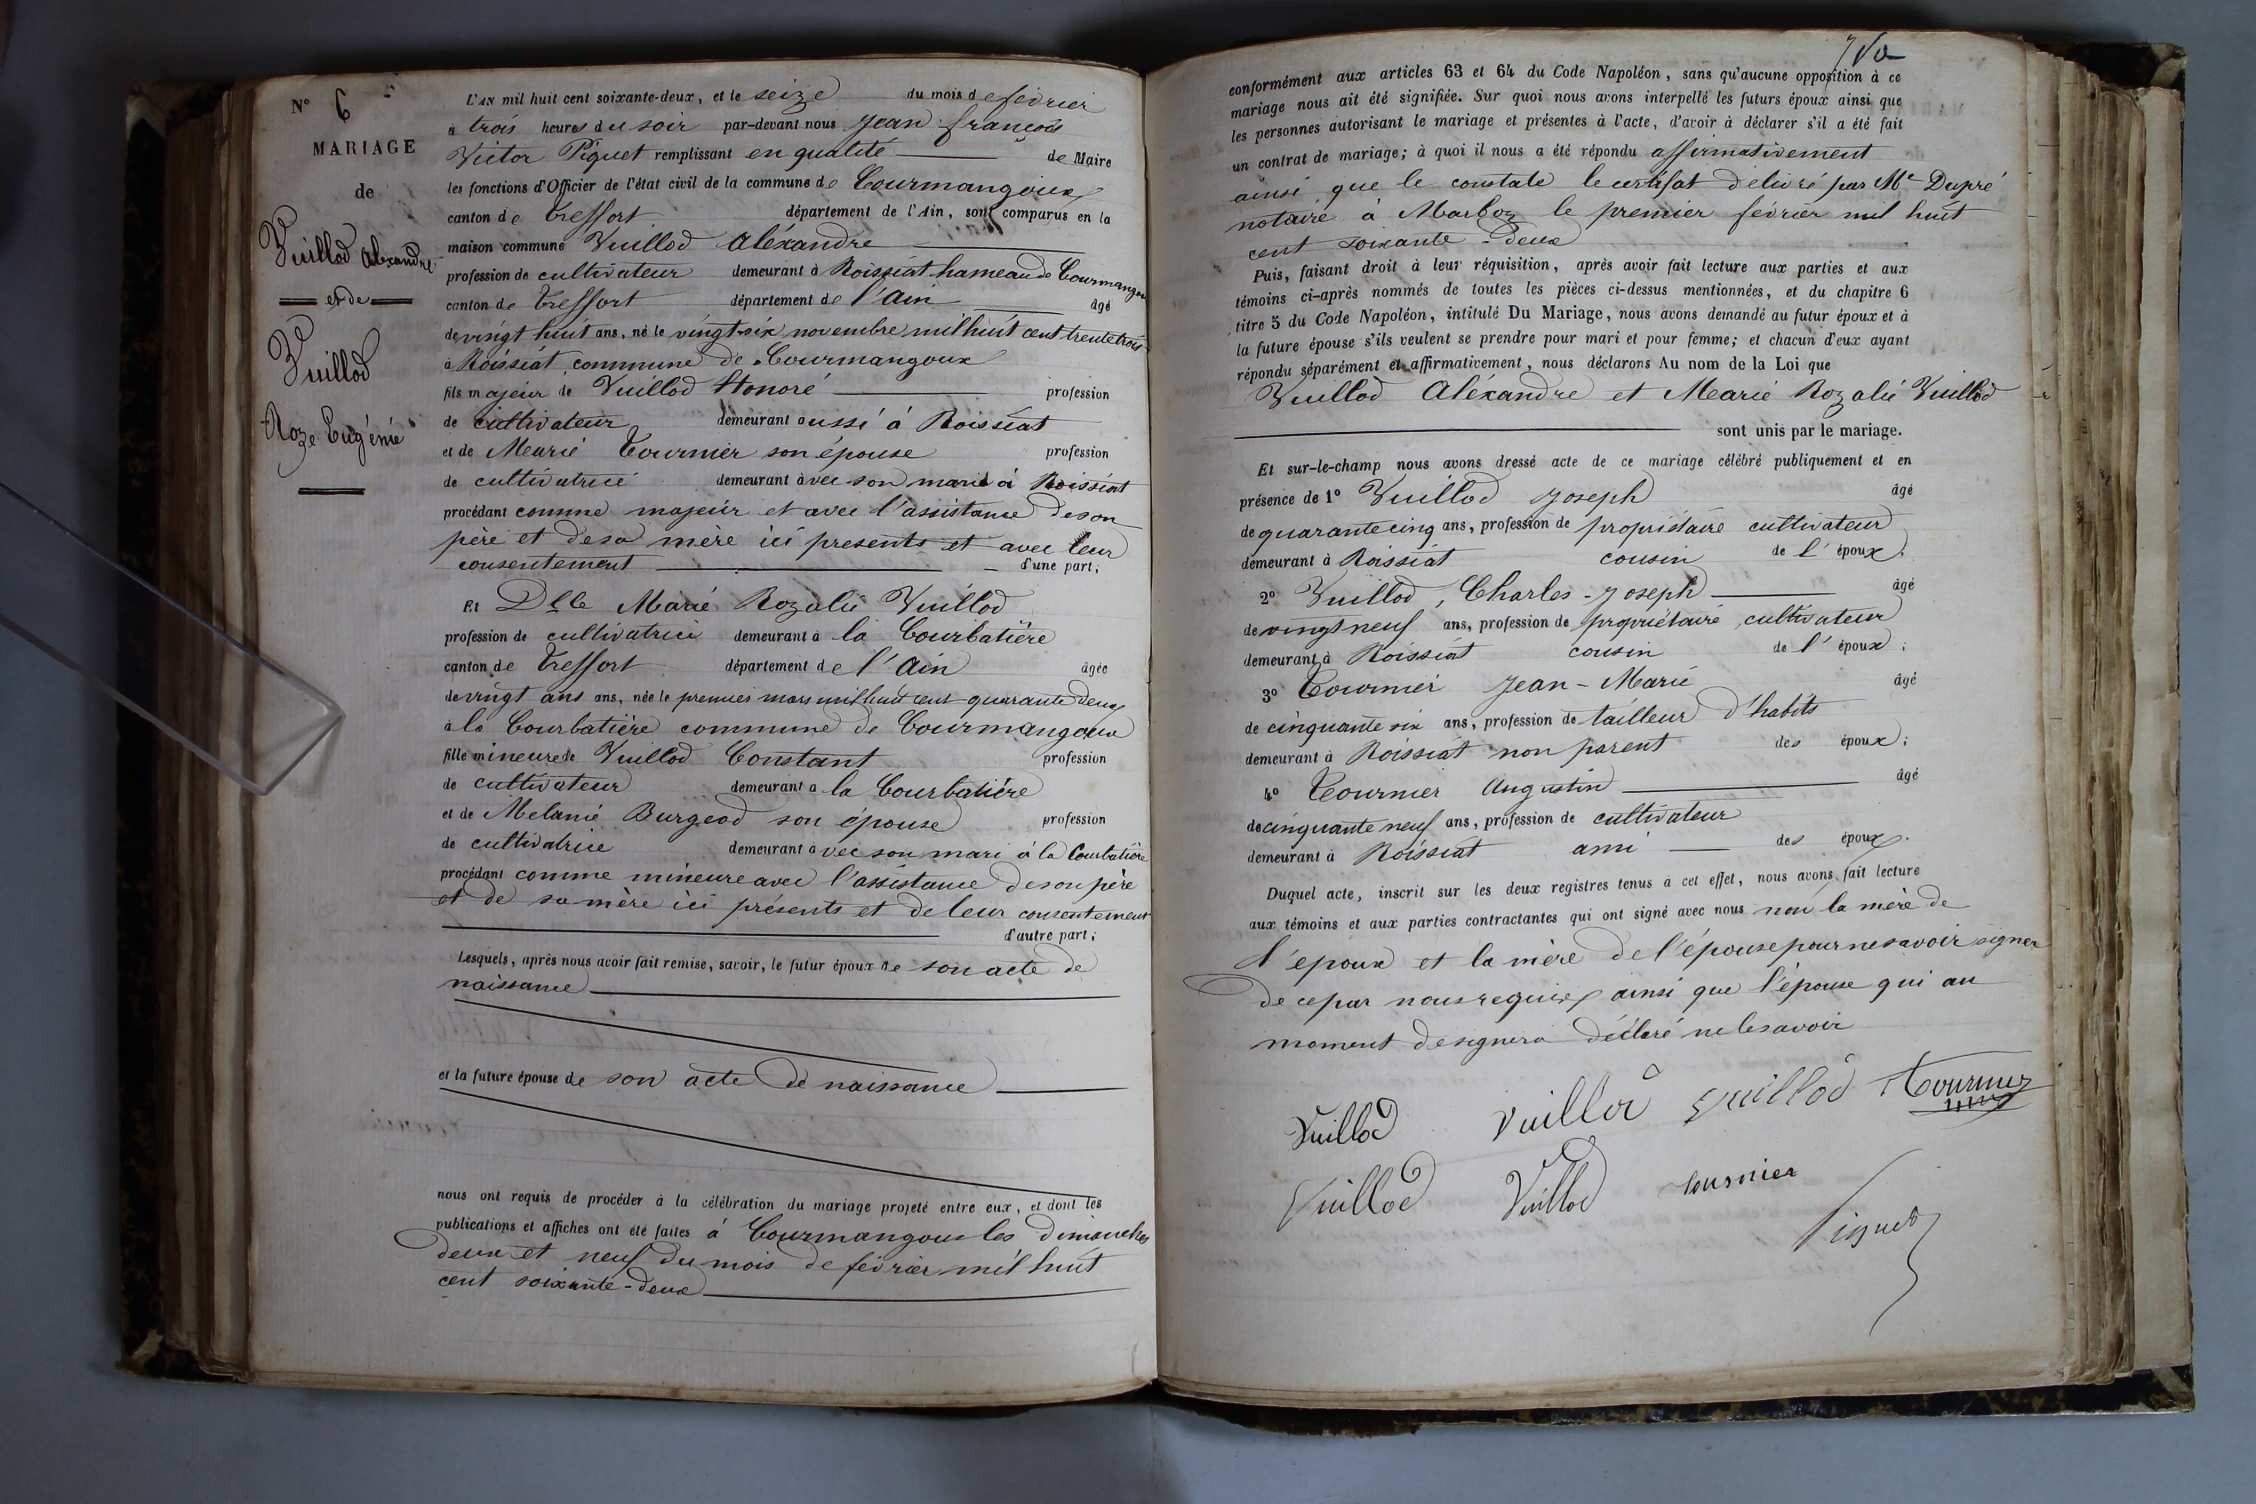 N° 6
MARIAGE
de
Vuillod Alexandre
et de
Vuillod
Roze Eugénie
L'AN mil huit cent soixante-deux, et le seize du mois de février
à trois heures du soir par-devant nous Jean françois
Victor Piquet remplissant en qualité de Maire
les fonctions d'Officier de l'état civil de la commune de Courmangoux
canton de Treffort département de l'Ain, sont comparus en la
maison commune Vuillod Aléxandre
profession de cultivateur demeurant à Roissiat hameau de Courmangoux
canton de Treffort département de l'Ain âgé
de vingt huit ans, né le vingt six novembre mil huit cent trente trois
à Roissiat commune de Courmangoux
fils majeur de Vuillod Honoré profession
de cultivateur demeurant aussi à Roissiat
et de Marie Tournier son épouse profession
de cultivatrice demeurant avec son mari à Roissiat
procédant comme majeur et avec l'assistance de son
père et de sa mère ici presents et avec leur
consentement d'une part;
Et Dlle Marie Rozalie Vuillod
profession de cultivatrice demeurant à la Courbatière
canton de Treffort département de l'Ain âgée
de vingt ans ans, née le premier mars mil huit cent quarante deux
à la Courbatière commune de Courmangoux
fille mineure de Vuillod Constant profession
de cultivateur demeurant à la Courbatière
et de Melanie Burgeod son épouse profession
de cultivatrice demeurant avec son mari à la Courbatière
procédant comme mineure avec l'assistance de son père
et de sa mère ici présents et de leur consentement
d'autre part;
Lesquels, après nous avoir fait remise, savoir, le futur époux de son acte de
naissance
et la future épouse de son acte de naissance
nous ont requis de procéder à la célébration du mariage projeté entre eux, et dont les
publications et affiches ont été faites à Courmangoux les dimanches
deux et neuf du mois de février mil huit
cent soixante-deux
conformément aux articles 63 et 64 du Code Napoléon, sans qu'aucune opposition à ce
mariage nous ait été signifiée. Sur quoi nous avons interpellé les futurs époux ainsi que
les personnes autorisant le mariage et présentes à l'acte, d'avoir à déclarer s'il a été fait
un contrat de mariage; à quoi il nous a été répondu affirmativement
ainsi que le constate le certifat délivré par Me Dupré
notaire à Marboz le premier février mil huit
cent soixante-deux
Puis, faisant droit à leur réquisition, après avoir fait lecture aux parties et aux
témoins ci-après nommés de toutes les pièces ci-dessus mentionnées, et du chapitre 6
titre 5 du Code Napoléon, intitulé Du Mariage, nous avons demandé au futur époux et à
la future épouse s'ils veulent se prendre pour mari et pour femme; et chacun d'eux ayant
répondu séparément et affirmativement, nous déclarons Au nom de la Loi que
Vuillod Aléxandre et Marie Rozalie Vuillod
sont unis par le mariage.
Et sur-le-champ nous avons dressé acte de ce mariage célébré publiquement et en
présence de 1° Vuillod Joseph âgé
de quarante cinq ans, profession de propriétaire cultivateur
demeurant à Roissiat cousin de l'époux;
2° Vuillod, Charles-Joseph âgé
de vingt neuf ans, profession de propriétaire cultivateur
demeurant à Roissiat cousin de l'époux;
3° Tournier Jean-Marie âgé
de cinquante six ans, profession de tailleur d'habits
demeurant à Roissiat non parent des époux;
4° Tournier Augustin âgé
de cinquante neuf ans, profession de cultivateur
demeurant à Roissiat ami des époux.
Duquel acte, inscrit sur les deux registres tenus à cet effet, nous avons fait lecture
aux témoins et aux parties contractantes qui ont signé avec nous non la mère de
l'époux et la mère de l'épouse pour ne savoir signer
de ce par nous requises ainsi que l'épouse qui au
moment de signer a déclaré ne le savoir
Vuillod Vuillod Vuillod Tournier
Vuillod Vuillod tournier
Piquet